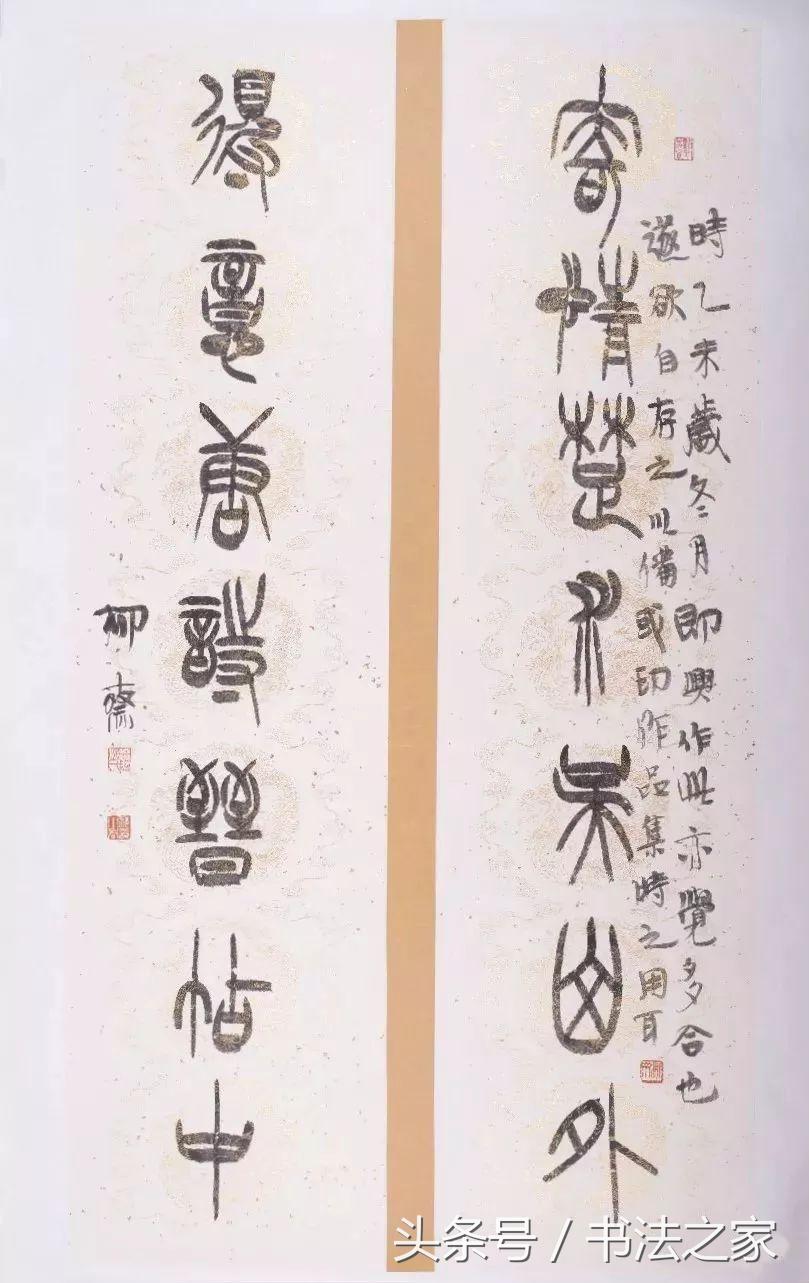 寄情楚水吳山外
時乙未歲冬月即興作此亦覺多合也
遂欲自存之以備或印作品集時之用耳
得意唐詩晉帖中
柳齋
头条号 / 书法之家